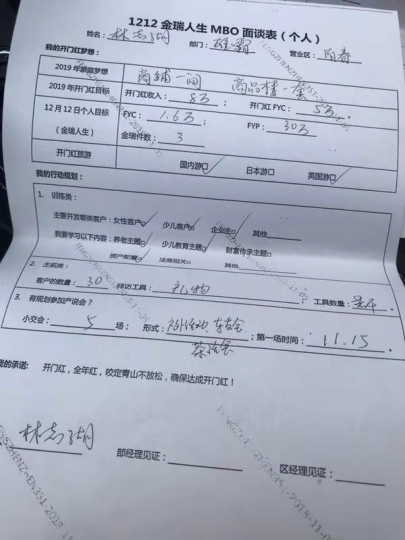 1212 金瑞人生 MBO 面谈表（个人）
姓名：林志湖 部门：雄霸 营业区：阳春
我的开门红梦想：
2019 年家庭梦想 商铺一间 商品楼一套
2019 年开门红目标 开门红收入：8万 开门红 FYC：5万
12 月 12 日个人目标 FYC：1.6万 FYP：30万
（金瑞人生） 金瑞件数：3
开门红旅游 国内游 日本游 英国游
我的行动规划：
1. 训练类：
主要开发哪类客户：女性客户 少儿客户 企业主 其他
我要学习以下内容：养老主题 少儿教育主题 财富传承主题
资产配置 法商相关 其他
2. 主拓类：
客户的数量：30 拜访工具：礼物 工具数量：
3. 有规划参加产说会？
小交会：5 场； 形式： 第一场时间：11.15
茶话会
我的承诺：
开门红，全年红，咬定青山不放松，确保达成开门红！
林志湖 部经理见证： 区经理见证：